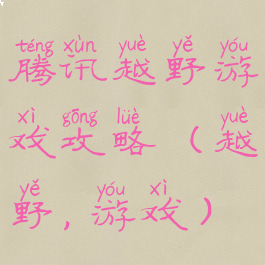 téng xùn yuè yě yóu
腾讯越野游
xì gōng lüè yuè
戏攻略（越
yě yóu xì
野，游戏）